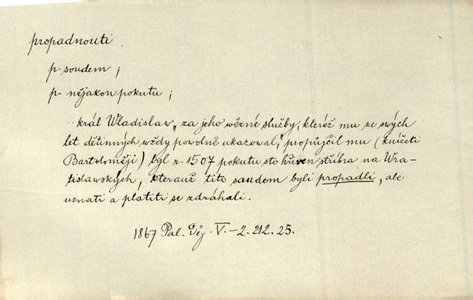 propadnouti
p. soudem ;
p. nějakou pokutu ;
král Wladislaw, za jeho wěrné služby, kteréž mu ze swých
let dětinných wždy powolně ukazowal, propůjčil mu (knížeti
Bartoloměji) byl r. 1507 pokutu sto hřiven stříbra na Wra-
tislawských, kterauž tito saudem byli propadli, ale
uznati a platiti se zdráhali.
1867 Pal. Děj. V.-2. 212. 25.